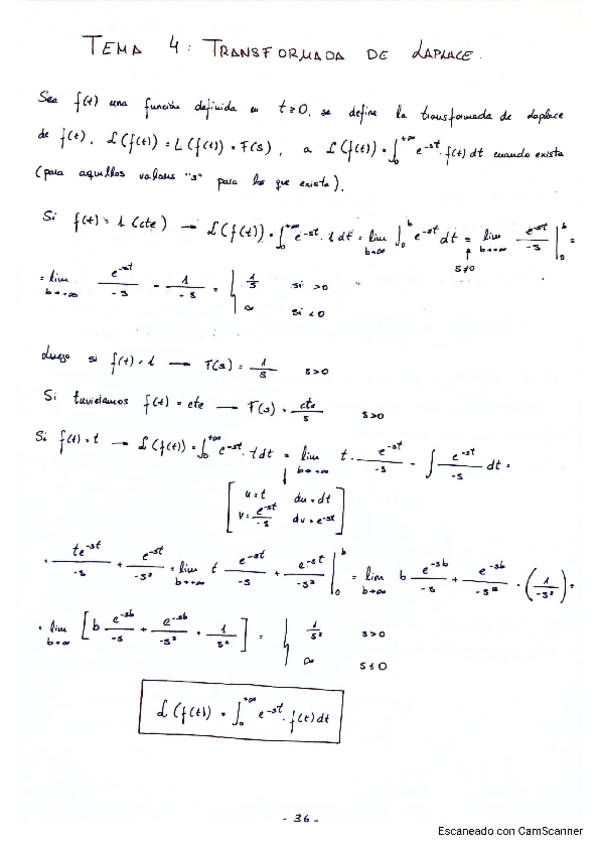 TEMA 4: TRANSFORMADA DE LAPLACE.
Sea f(t) una función definida en t≥0, se define la transformada de Laplace
de f(t), L(f(t)) = L(f(t)) = F(s), a L(f(t)) = ∫₀^{+∞} e^{-st}·f(t) dt cuando exista
(para aquellos valores "s" para los que exista).
Si f(t) = 1 (cte) → L(f(t)) = ∫₀^{+∞} e^{-st}·1 dt = lim_{b→+∞} ∫₀^b e^{-st} dt = lim_{b→+∞} e^{-st}/-s |₀^b =
s≠0
= lim_{b→+∞} e^{-st}/-s - 1/-s = { 1/s si >0
∞ si <0
Luego si f(t) = 1 → F(s) = 1/s s>0
Si tuvieramos f(t) = cte → F(s) = cte/s s>0
Si f(t) = t → L(f(t)) = ∫₀^{+∞} e^{-st}·t dt = lim_{b→+∞} t·e^{-st}/-s - ∫ e^{-st}/-s dt =
[ u=t du=dt
v=e^{-st}/-s dv=e^{-st} ]
= te^{-st}/-s + e^{-st}/-s² = lim_{b→+∞} t e^{-st}/-s + e^{-st}/-s² |₀^b = lim_{b→+∞} b e^{-sb}/-s + e^{-sb}/-s² - (1/-s²) =
= lim_{b→∞} [ b e^{-sb}/-s + e^{-sb}/-s² + 1/s² ] = { 1/s² s>0
∞ s≤0
L(f(t)) = ∫₀^{+∞} e^{-st}·f(t) dt
- 36 -
Escaneado con CamScanner